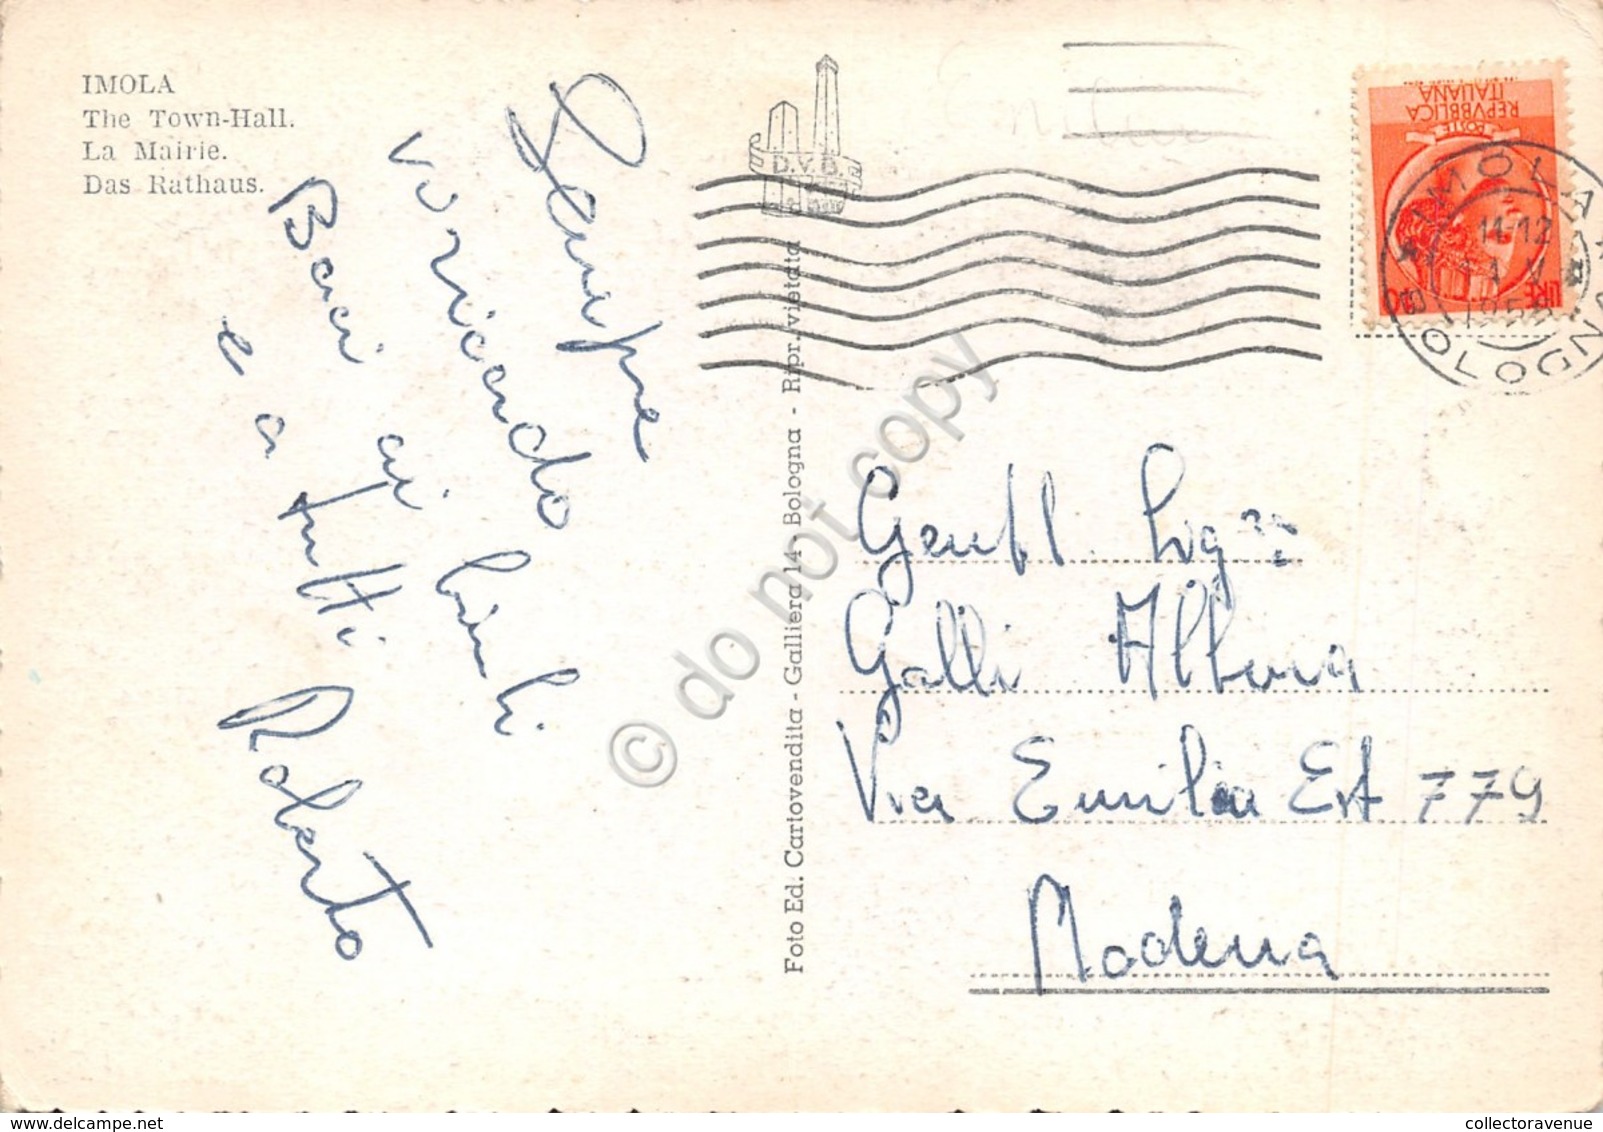 IMOLA
The Town-Hall.
La Mairie.
Das Rathaus.
Sempre
vi ricordo
Baci ai bimbi
e a tutti
Roberto
D.V.B.
Foto Ed. Cartovendita - Galliera 14 - Bologna - Ripr. vietata
REPVBBLICA
ITALIANA
POSTE
LIRE 10
IMOLA
BOLOGNA
11-12
Gentl Sig.ra
Galli Albura
Via Emilia Est 779
Modena
© do not copy
collectoravenue.com